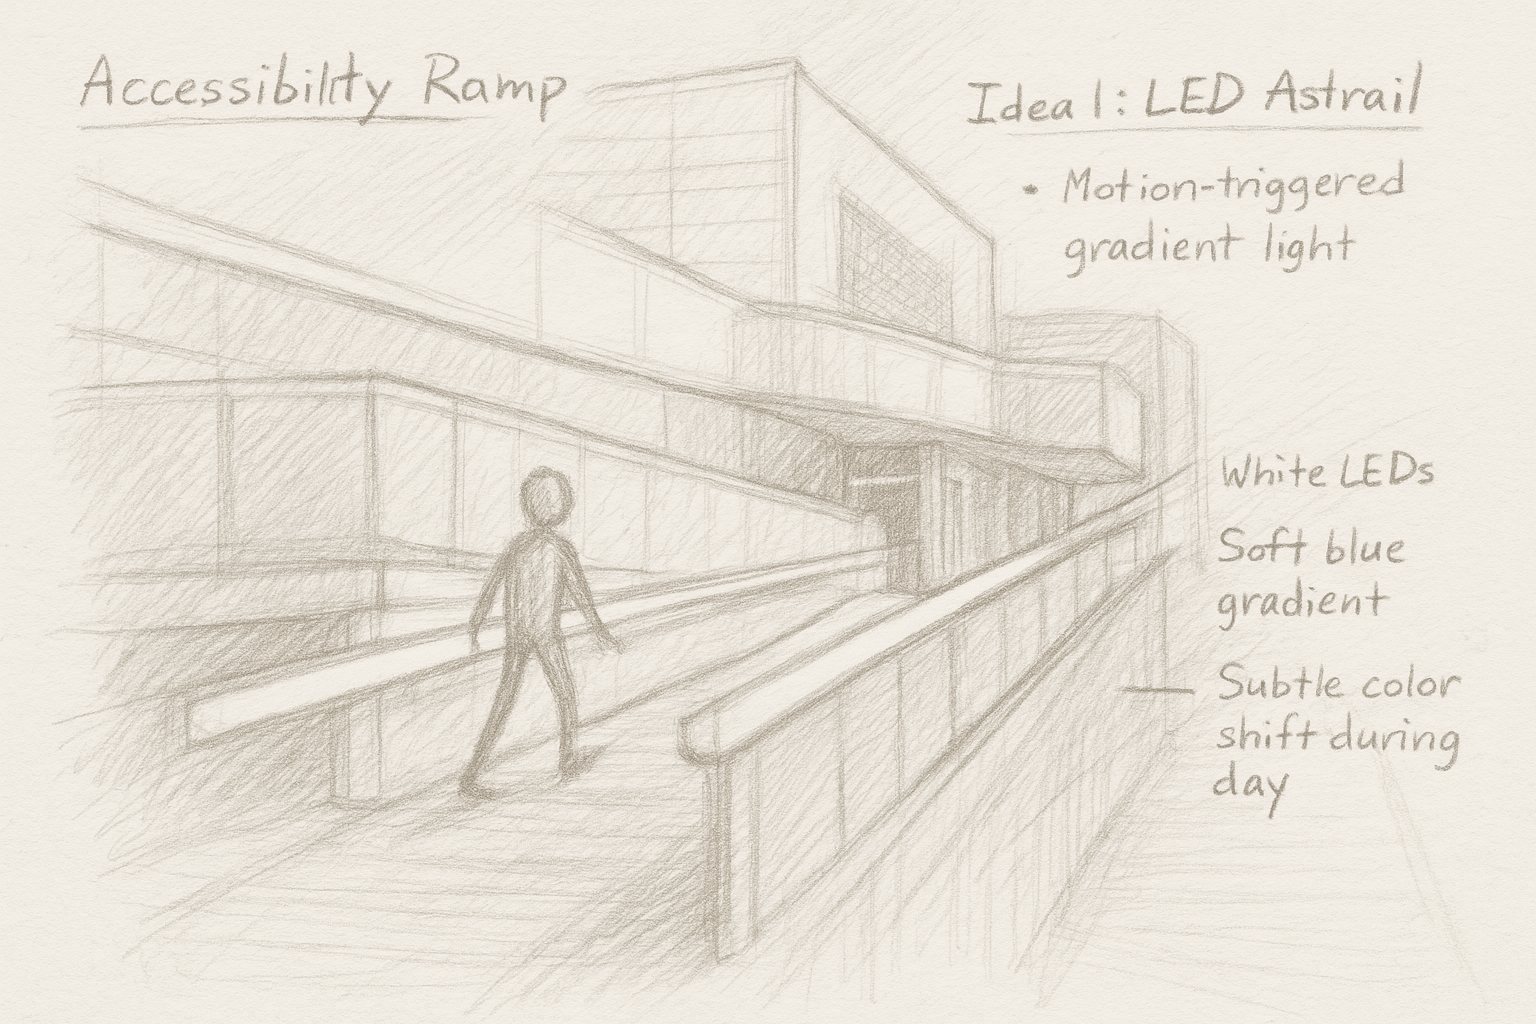 Accessibility Ramp
Idea 1: LED Astrail
• Motion-triggered
gradient light
White LEDs
Soft blue
gradient
Subtle color
shift during
day